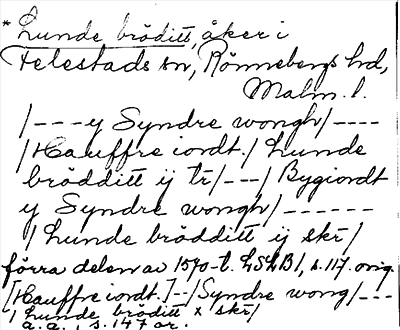 * Lunde bröditt, åker i
Felestads sn, Rönnebergs hd,
Malm. l.
/---y Syndre wongh/----
/Hauffre iordt./ Lunde
brödditt ij tr/---/ Bygiordt
y Syndre wongh/------
/Lunde brödditt ij skr/
förra delen av 1570-t. LSLB1, s.117. orig.
[Hauffre iordt.]--/Syndre wong/---
/Lunde bröditt x skr/
a.a., s.147 ar.